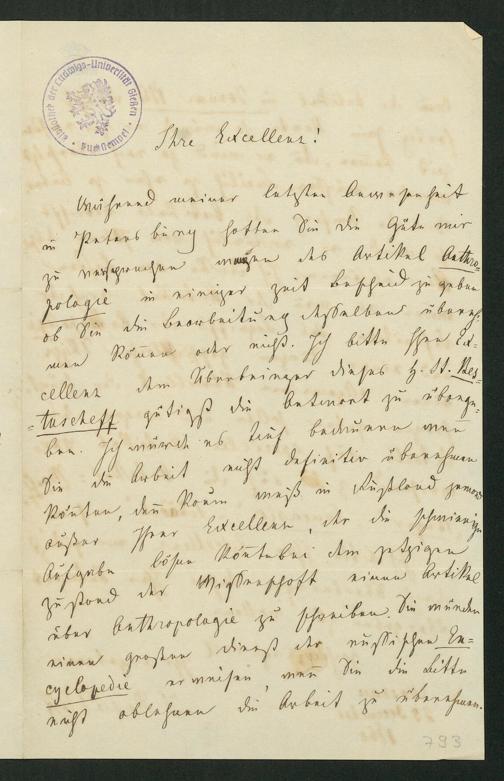 Bibliothek der Ludwigs-Universität Gießen
Ihre Excellenz!
Während meiner letzten Anwesenheit
in Petersburg hatten Sie die Güte mir
zu versprochen wegen des Artikel Anthro-
pologie in einiger Zeit Bescheid zu geben
ob Sie die Bearbeitung desselben überneh-
men können oder nicht. Ich bitte Ihre Ex-
cellenz dem Überbringer dieses H. St. Bes-
tuscheff gütigst die Antwort zu überge-
ben. Ich würde es tief bedauern wenn
Sie die Arbeit nicht definitiv übernehmen
könnten, denn kaum weiß in Rußland jemand
außer Ihrer Excellenz, der die schwierige
Aufgabe lösen könnte bei dem jetzigen
Zustand der Wissenschaft einen Artikel
über Anthropologie zu schreiben. Sie würden
einen grossen Dienst der russischen En-
cyclopedie erweisen, wenn Sie die Bitte
nicht ablehnen die Arbeit zu übernehmen.
793